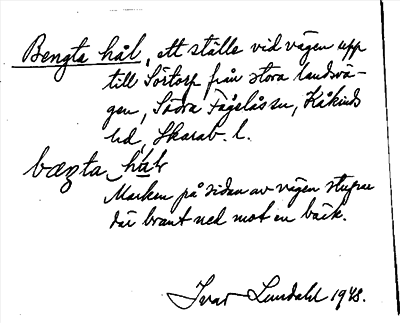 Bengta hål, ett ställe vid vägen upp
till Sörtorp från stora landsvä-
gen, Södra Fågelåssn, Kåkinds
hd, Skarab. l.
bæŋta hål
Marken på sidan av vägen stupar
där brant ned mot en bäck.
Ivar Lundahl 1948.